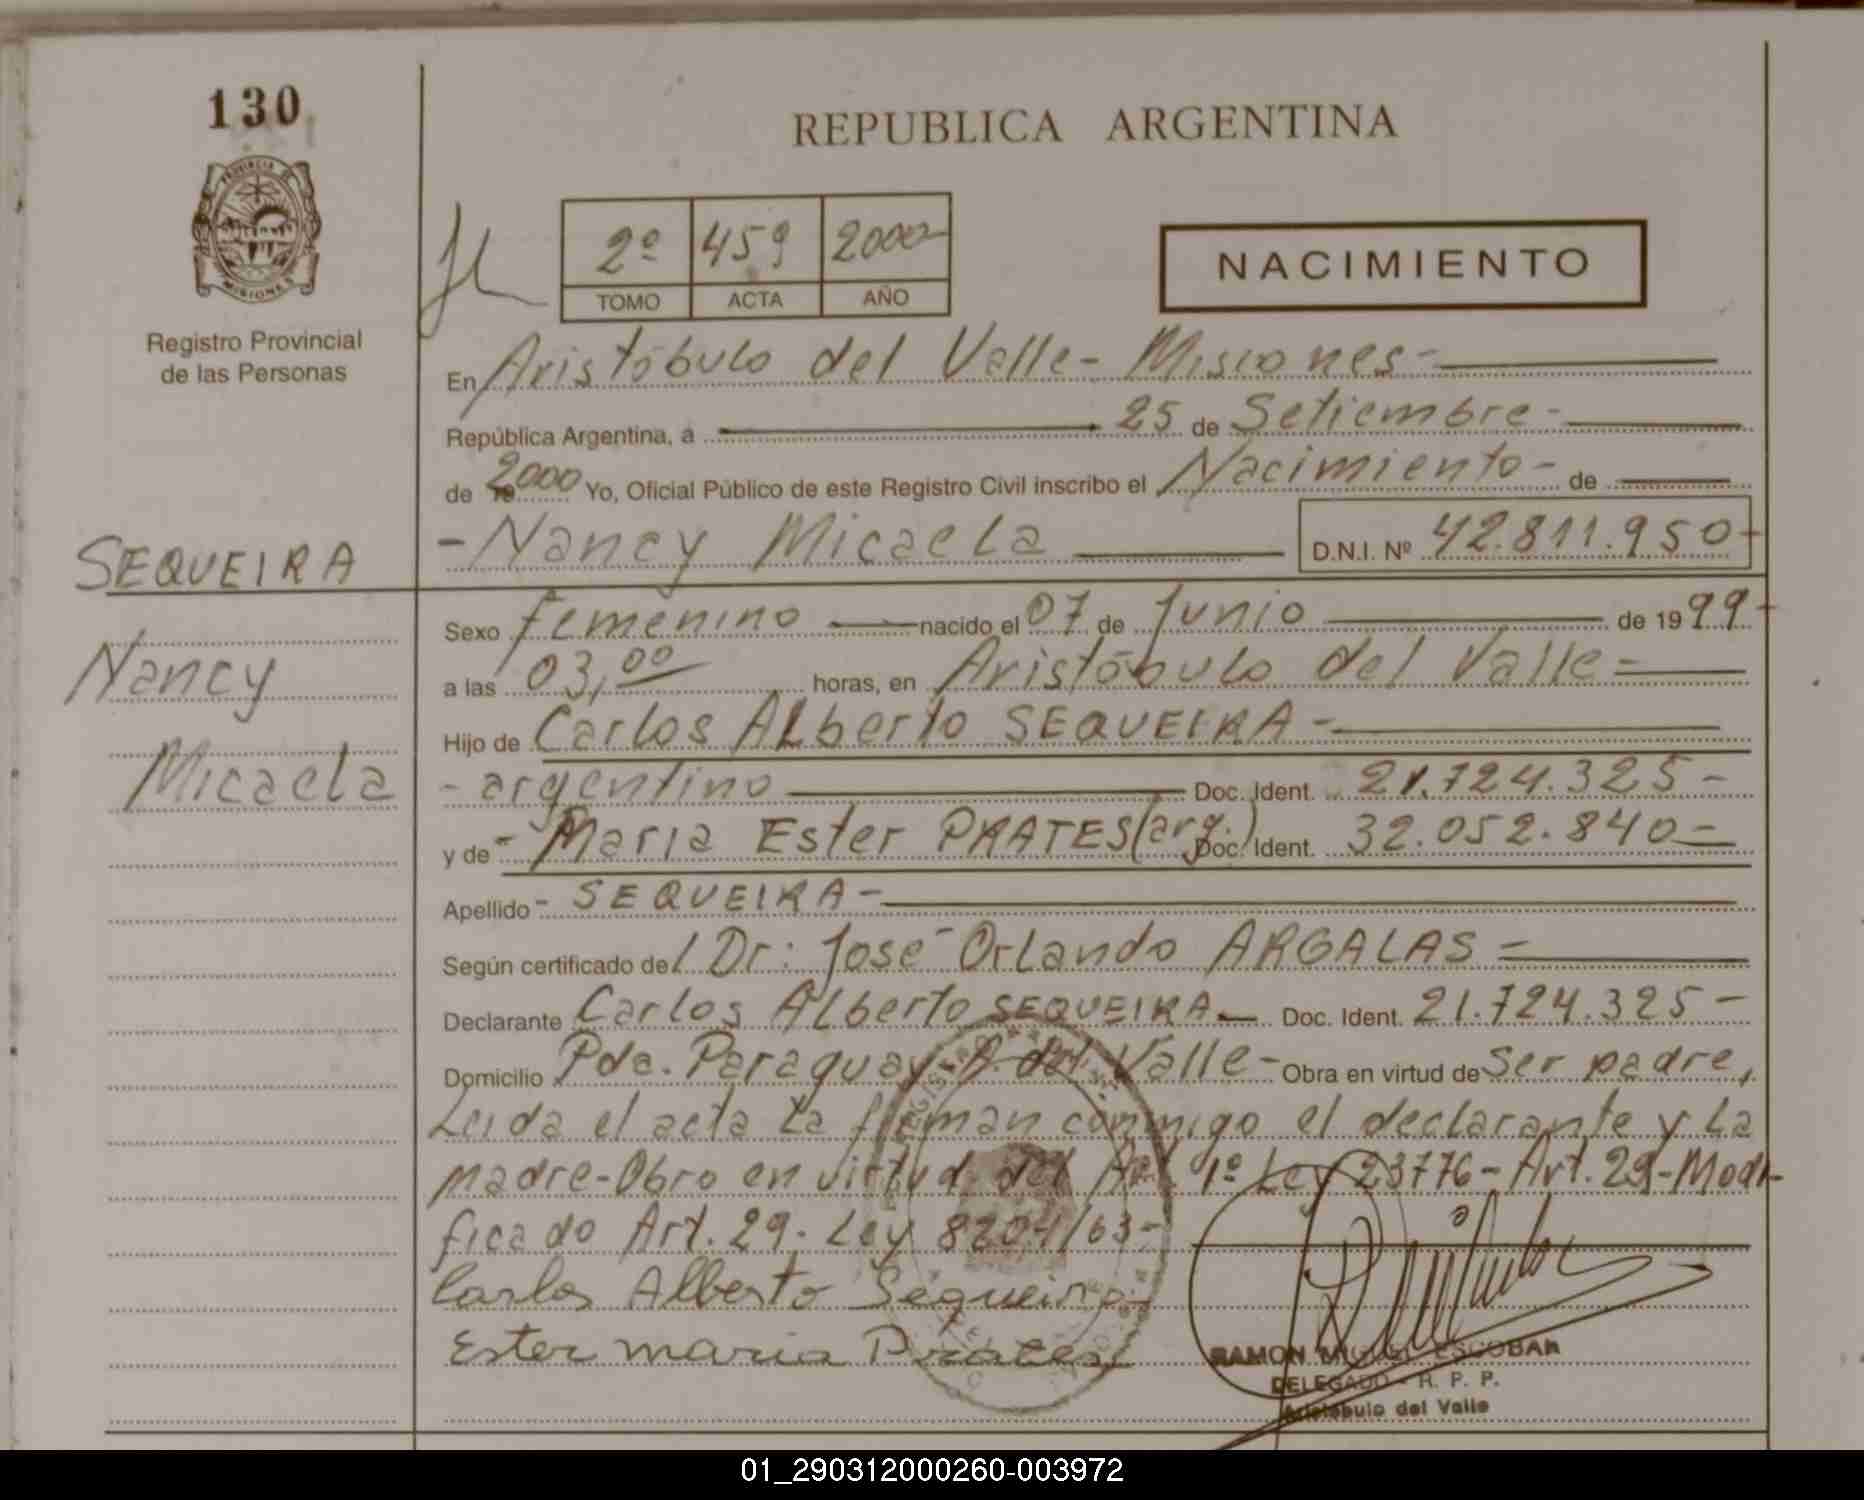 130
PROVINCIA DE
MISIONES
Registro Provincial
de las Personas
REPUBLICA ARGENTINA
2º 459 2000
TOMO ACTA AÑO
NACIMIENTO
En Aristóbulo del Valle - Misiones -
República Argentina, a 25 de Setiembre -
de 2000 Yo, Oficial Público de este Registro Civil inscribo el Nacimiento - de
- Nancy Micaela D.N.I. Nº 42.811.950 -
SEQUEIRA
Nancy
Micaela
Sexo femenino nacido el 07 de Junio de 1999 -
a las 03,00 horas, en Aristóbulo del Valle -
Hijo de Carlos Alberto SEQUEIRA -
- argentino Doc. Ident. 21.724.325 -
y de - Maria Ester PRATES (arg.) Doc. Ident. 32.052.840 -
Apellido - SEQUEIRA -
Según certificado del Dr: José Orlando ARGALAS -
Declarante Carlos Alberto SEQUEIRA Doc. Ident. 21.724.325 -
Domicilio Pda. Paraguay - A. del Valle - Obra en virtud de ser padre,
Leida el acta la firman conmigo el declarante y la
madre - Obro en virtud del Art. 1º Ley 23776 - Art. 29 - Modi-
ficado Art. 29 - Ley 8204/63 -
Carlos Alberto Sequeira
Ester maria Prates
RAMON MIGUEL ESCOBAR
DELEGADO - R. P. P.
Aristóbulo del Valle
01_290312000260-003972